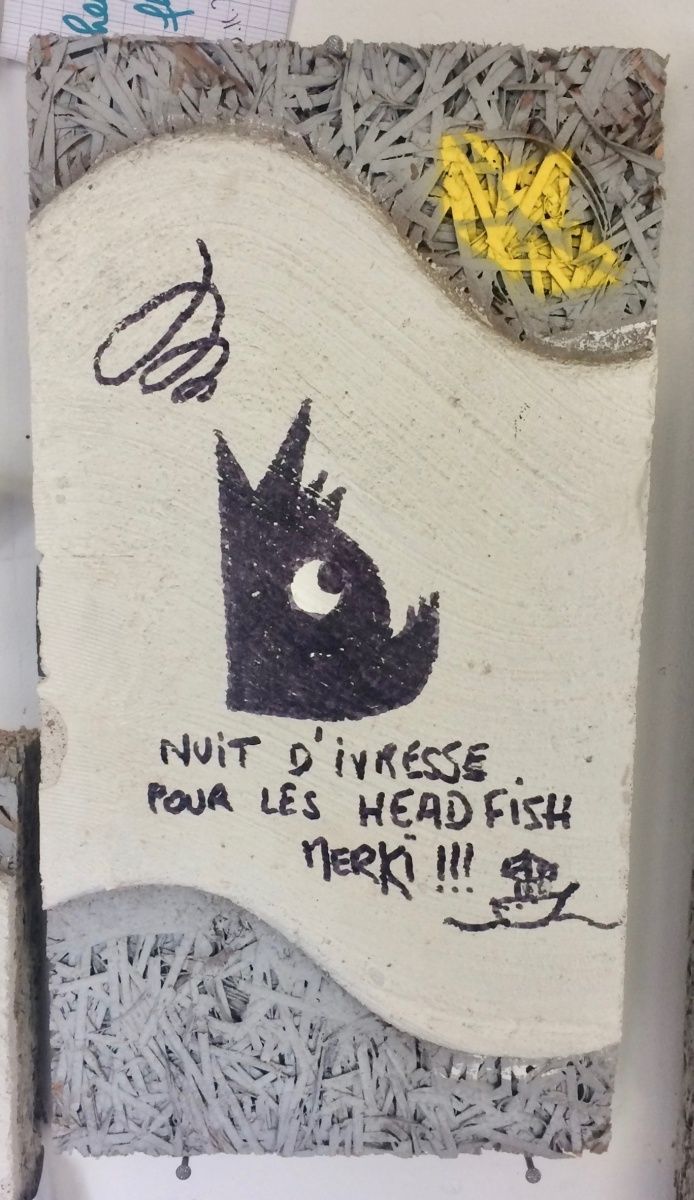 NUIT D'IVRESSE
POUR LES HEADFISH
MERKÏ !!!